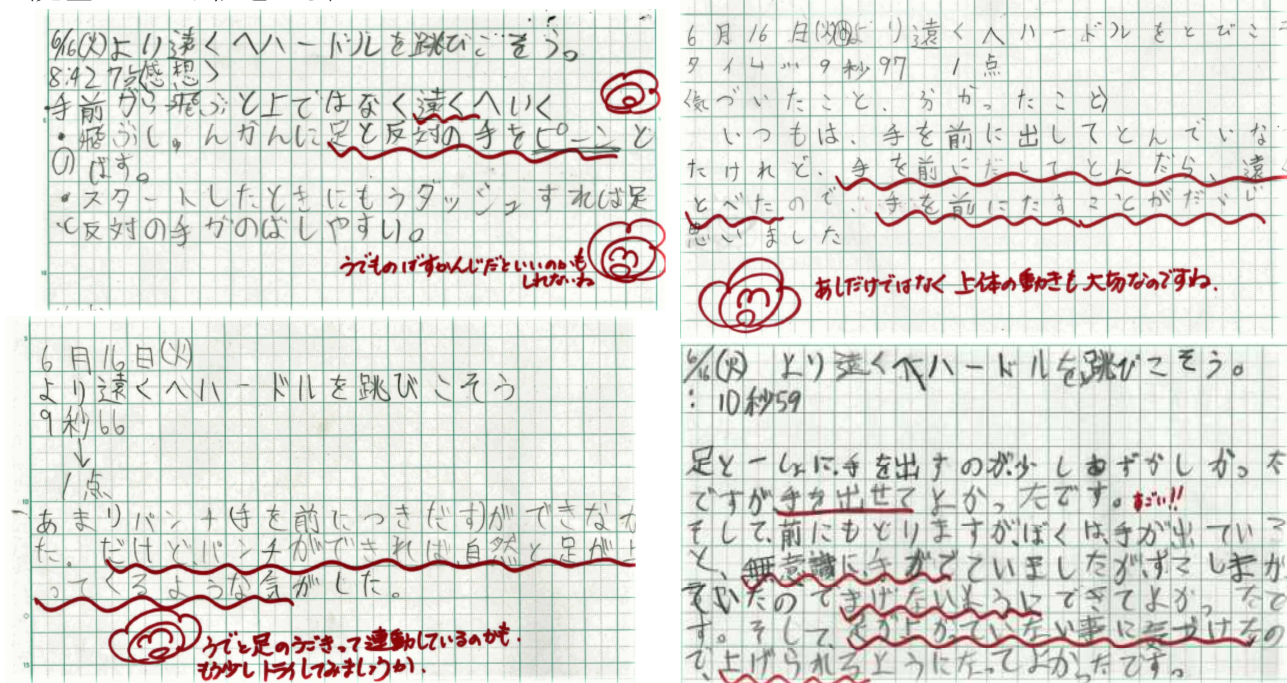 6/16(火)より遠くへハードルを跳びこそう。
8:42 7点(感想)
手前から飛ぶと上ではなく遠くへいく
・飛ぶしゅんかんに足と反対の手をピーンと
のばす。
・スタートしたときにもうダッシュすれば足
と反対の手がのばしやすい。
うでものばすかんじだといいのかも
しれないね
6月16日(火)より遠くへハードルをとびこ
タイム…9秒97 1点
〈気づいたこと、分かったこと〉
いつもは、手を前に出してとんでいな
たけれど、手を前にだしてとんだら、遠
とべたので、手を前にだすことがだいじ
思いました
あしだけではなく上体の動きも大切なのですね.
6月16日(火)
より遠くへハードルを跳びこそう
9秒66
↓
1点
あまりパンチ(手を前につきだす)ができなか
た。だけど、パンチができれば、自然と足が上
ってくるような気がした。
うでと足のうごきって連動しているのかも.
もう少しトライしてみましょうか.
6/16(火) より遠くへハードルを跳びこそう。
: 10秒59
足と一しょに、手を出すのが、少しむずかしかった
ですが手を出せてよかったです。すごい!!
そして、前にもどりますが、ぼくは、手が出てい
と、無意識に、手がでていましたが、すこしまが
ていたのでまげないようにできてよかったで
す。そして、足が上がっていない事に気づけたの
で上げられるようになってよかったです。